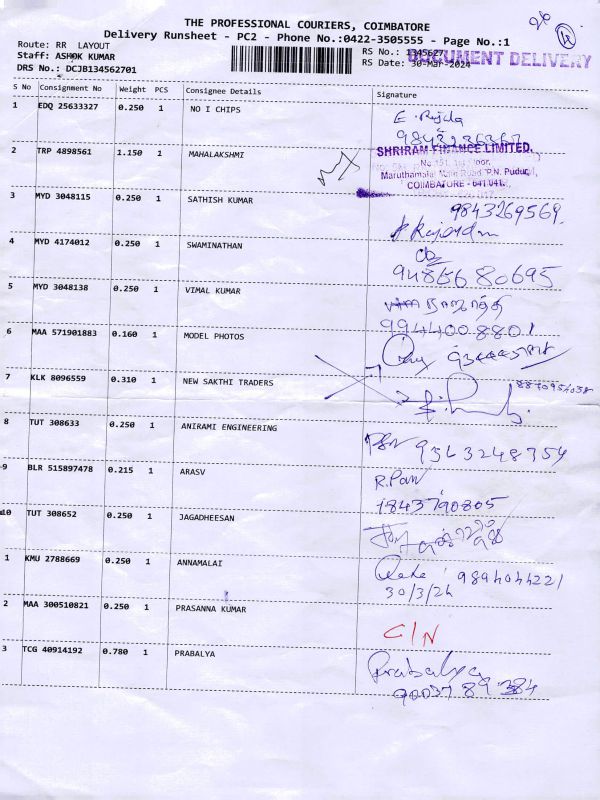 THE PROFESSIONAL COURIERS, COIMBATORE
Delivery Runsheet - PC2 - Phone No.:0422-3505555 - Page No.:1
Route: RR LAYOUT
Staff: ASHOK KUMAR
DRS No.: DCJB134562701
RS No.: 1345627
RS Date: 30-Mar-2024
DOCUMENT DELIVERY
S No Consignment No Weight PCS Consignee Details Signature
1 EDQ 25633327 0.250 1 NO I CHIPS
2 TRP 4898561 1.150 1 MAHALAKSHMI
SHRIRAM FINANCE LIMITED.
No 151, 1st Floor,
Maruthamalai Main Road, P.N. Pudur,
COIMBATORE - 641 041.
3 MYD 3048115 0.250 1 SATHISH KUMAR 9843269569
4 MYD 4174012 0.250 1 SWAMINATHAN
9486680695
5 MYD 3048138 0.250 1 VIMAL KUMAR
9944008801
6 MAA 571901883 0.160 1 MODEL PHOTOS
7 KLK 8096559 0.310 1 NEW SAKTHI TRADERS
8 TUT 308633 0.250 1 ANIRAMI ENGINEERING
9 BLR 515897478 0.215 1 ARASV
10 TUT 308652 0.250 1 JAGADHEESAN
1 KMU 2788669 0.250 1 ANNAMALAI
30/3/24
2 MAA 300510821 0.250 1 PRASANNA KUMAR
C/N
3 TCG 40914192 0.780 1 PRABALYA Prabalya